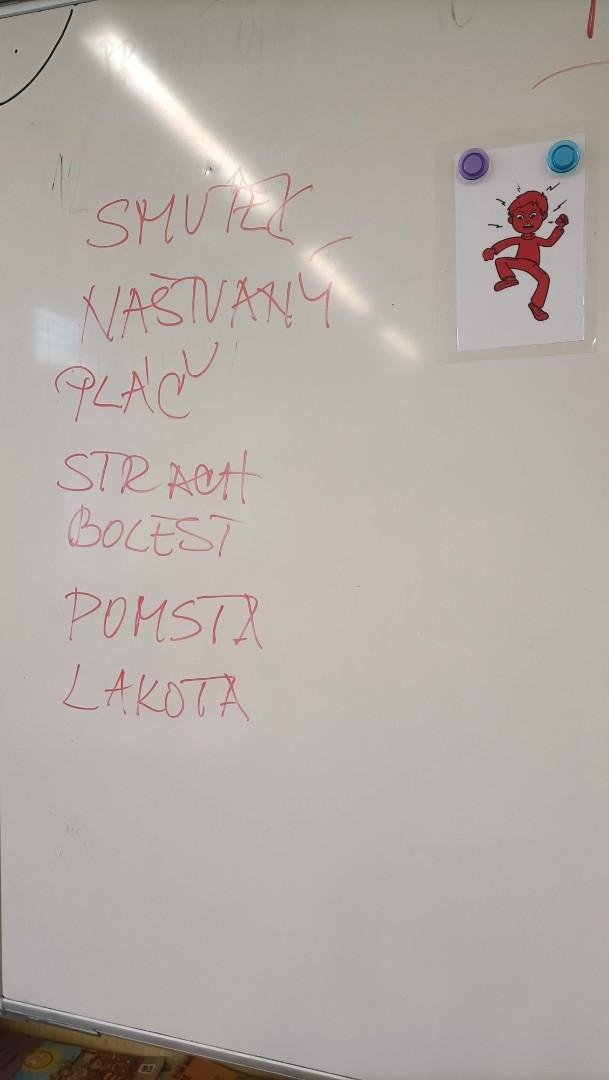 SMUTEK
NAŠTVANÝ
PLÁČ
STRACH
BOLEST
POMSTA
LAKOTA